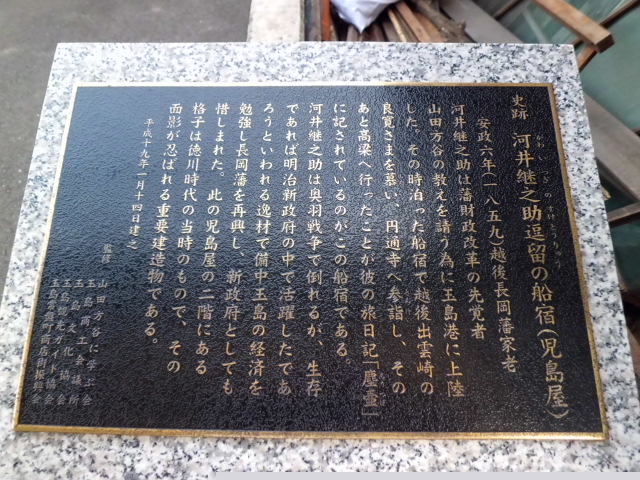 史跡 河井継之助逗留の船宿(児島屋)
かわいつぎのすけとうりゅう
安政六年(一八五九)越後長岡藩家老
河井継之助は藩財政改革の先覚者
山田方谷の教えを請う為に玉島港に上陸
した。その時泊った船宿で越後出雲崎の
良寛さまを慕い、円通寺へ参詣し、その
あと高梁へ行ったことが彼の旅日記「塵壷」
に記されているのがこの船宿である。
河井継之助は奥羽戦争で倒れるが、生存
であれば明治新政府の中で活躍したであ
ろうといわれる逸材で備中玉島の経済を
勉強し長岡藩を再興し、新政府としても
惜しまれた。此の児島屋の二階にある
格子は徳川時代の当時のもので、その
面影が忍ばれる重要建造物である。
平成十九年一月十四日建之
監修
山田方谷に学ぶ会
玉島商工会議所
玉島文化協会
玉島観光ガイド協会